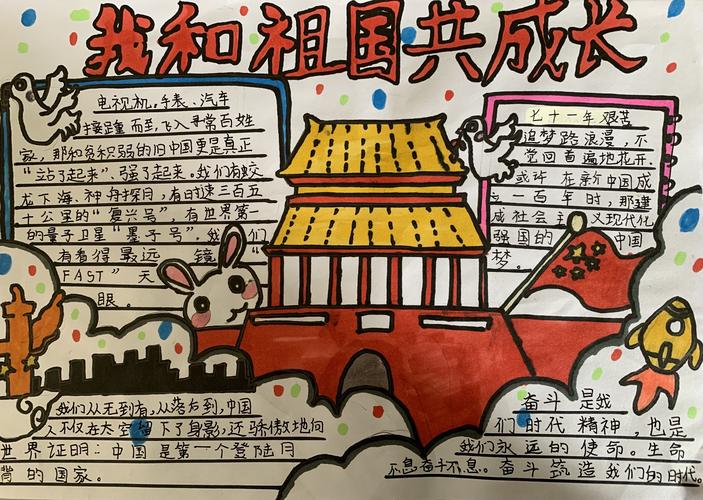 我和祖国共成长
电视机,手表、汽车
接踵而至,飞入寻常百姓
家,那和贫积弱的旧中国更是真正
“站了起来”、强了起来。我们有蛟
龙下海、神舟探月,有时速三百五
十公里的“复兴号”,有世界第一
的量子卫星“墨子号”,我们
有看得最远 镜“
FAST”天
眼。
七十一年艰苦
追梦路浪漫,不
觉回首遍地花开.
或许在新中国成
一百年时,那建
成社会主义现代化
强国的 中国
梦。
我们从无到有,从落后到,中国
人不仅在太空留下了身影,还骄傲地向
世界证明:中国是第一个登陆月
背的国家。
奋斗是我
们时代精神,也是
我们永远的使命。生命
不息奋斗不息。奋斗筑造我们的时代。